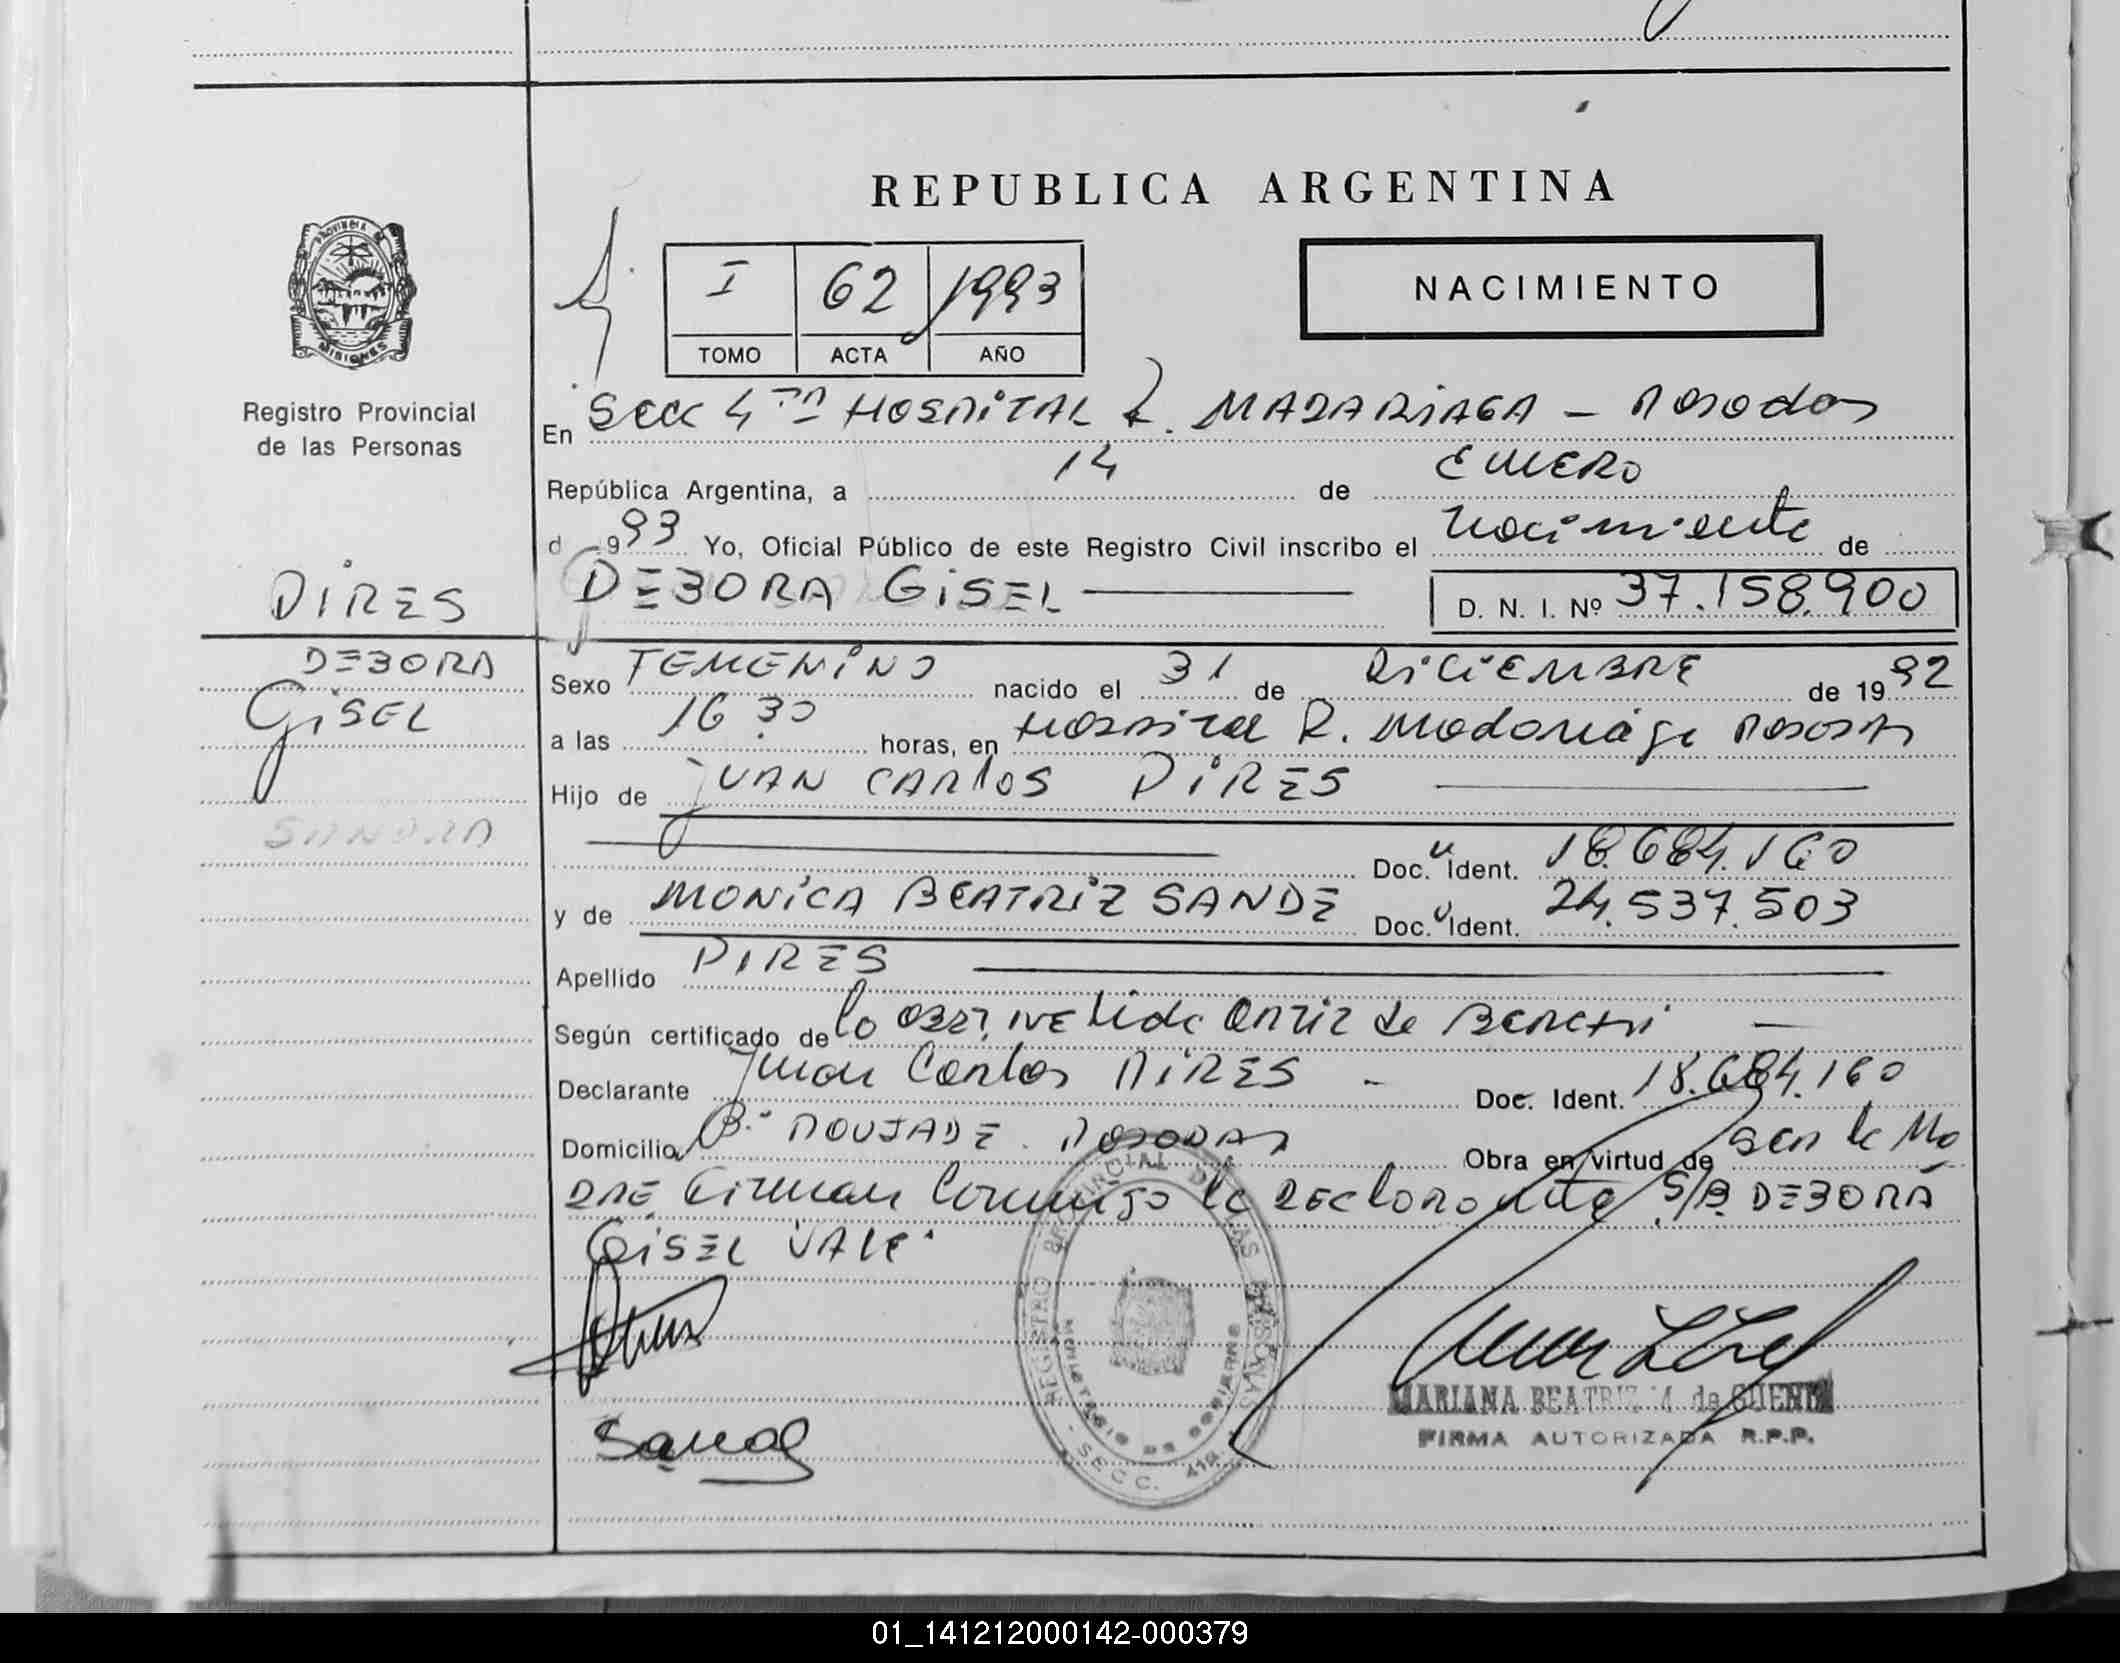 REPUBLICA ARGENTINA
PROVINCIA DE
MISIONES
Registro Provincial
de las Personas
I 62 1993
TOMO ACTA AÑO
NACIMIENTO
En SECC 4TA HOSPITAL R. MADARIAGA - POSADAS
República Argentina, a 14 de ENERO
d 993 Yo, Oficial Público de este Registro Civil inscribo el Nacimiento de
DEBORA GISEL D. N. I. Nº 37.158.900
PIRES
DEBORA
GISEL
SANDRA
Sexo FEMENINO nacido el 31 de DICIEMBRE de 1992
a las 16 30 horas, en HOSPITAL R. Madariaga POSADAS
Hijo de JUAN CARLOS PIRES
Doc. Ident. 18.684.160
y de MONICA BEATRIZ SANDE Doc. Ident. 24.537.503
Apellido PIRES
Según certificado de la OBST. Ortiz de
Declarante Juan Carlos PIRES - Doc. Ident. 18.684.160
Domicilio Bº POUJADE. POSADAS Obra en virtud de ser la MA
DRE Firman conmigo la DECLARANTE S/B. DEBORA
GISEL VALE.
REGISTRO PROVINCIAL DE LAS PERSONAS
MINISTERIO DE GOBIERNO
- SECC. 4ta. -
MARIANA BEATRIZ M. de
FIRMA AUTORIZADA R.P.P.
01_141212000142-000379